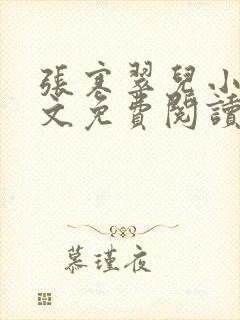 張寒翠兒小
文免費閱讀
慕瑾夜